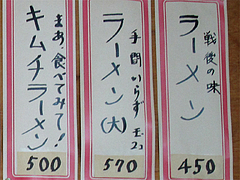 戦後の味
ラーメン
450
手間いらず 玉2コ
ラーメン(大)
570
まあ食べてみて!
キムチラーメン
500